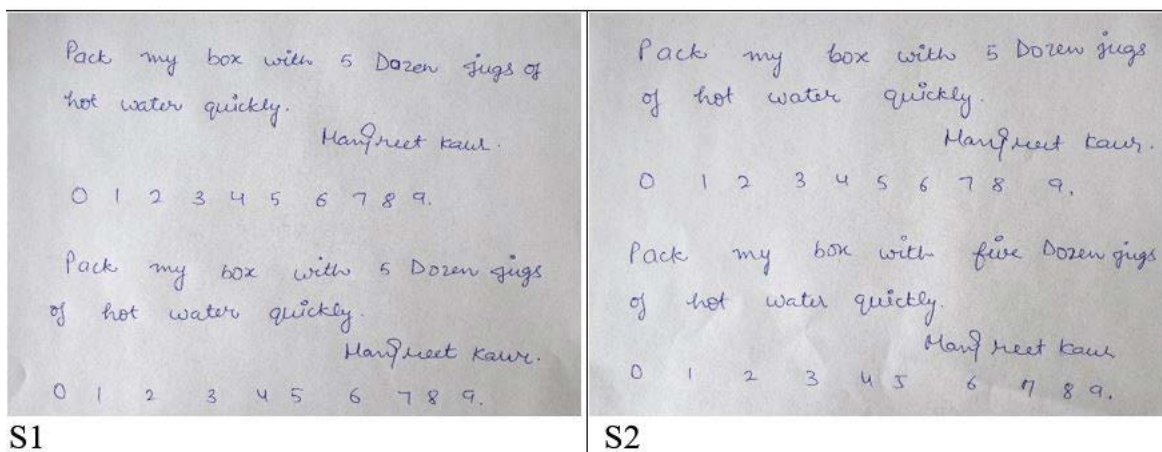 Pack my box with 5 Dozen jugs of
hot water quickly.
Manpreet Kaur.
0 1 2 3 4 5 6 7 8 9.
Pack my box with 5 Dozen jugs
of hot water quickly.
Manpreet Kaur.
0 1 2 3 4 5 6 7 8 9.
S1
Pack my box with 5 Dozen jugs
of hot water quickly.
Manpreet Kaur.
0 1 2 3 4 5 6 7 8 9.
Pack my box with five Dozen jugs
of hot water quickly.
Manpreet Kaur
0 1 2 3 4 5 6 7 8 9.
S2